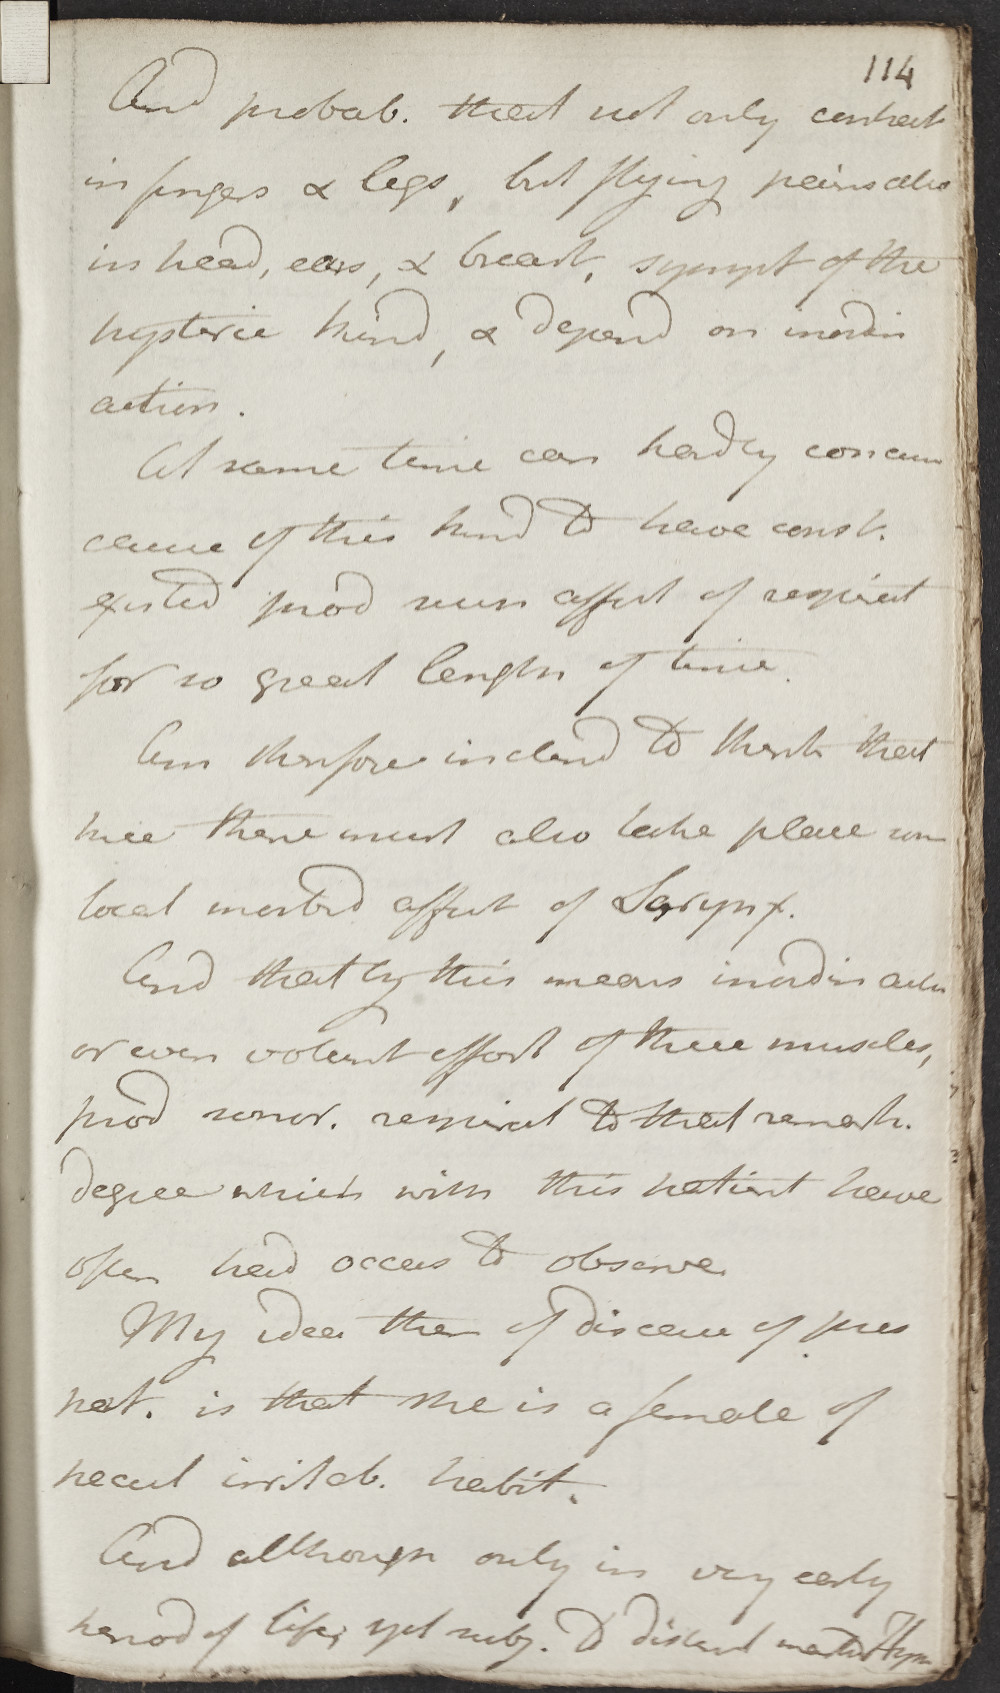 114
And probab. that not only contract
in fingers & legs, but flying pains also
in head, ears, & breast, sympt of the
hysteric kind, & depend on inordin
action.
At same time can hardly conceive
cause of this kind to have const.
existed prod affect of respirat
for so great length of time.
Am therefore inclend to think that
here there must also take place som
local morbid affect of Larynx.
And that by this means inordin actn
or even violent effort of these muscles,
prod sonor. respirat to that remark.
degree which with this patient have
often had occas to observe
My idea then of disease of pres
pat. is that she is a female of
pecul irritab. habit.
And although only in very early
period of life, yet subj. to distinct Hyst